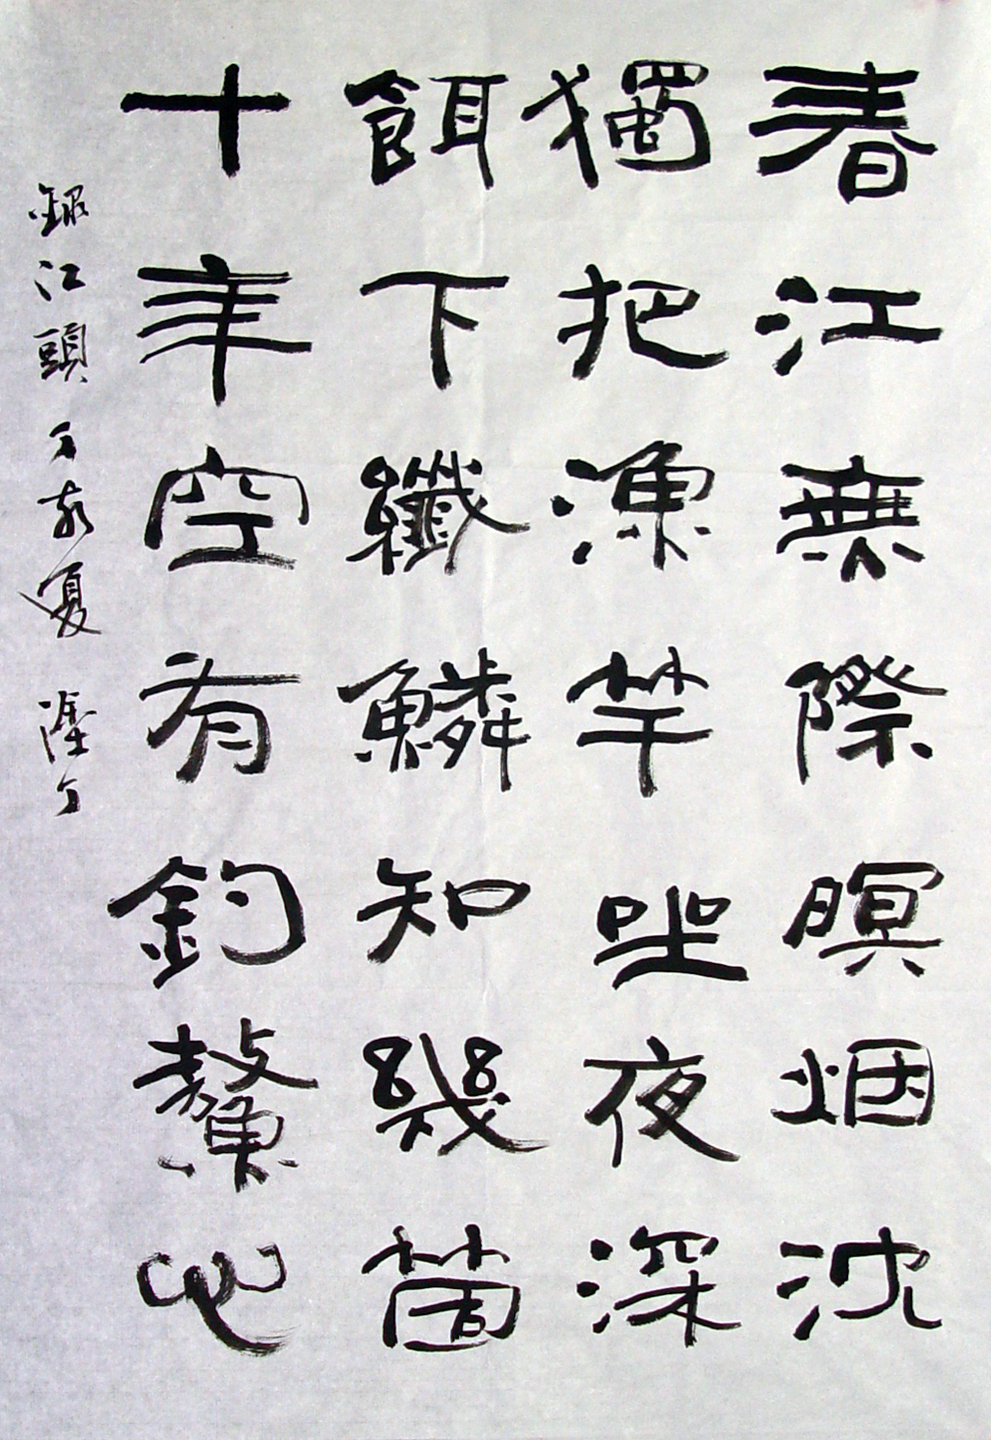 春江無際暝烟沈
獨把漁竿坐夜深
餌下纖鱗知幾箇
十年空有釣鰲心
江頭
夏